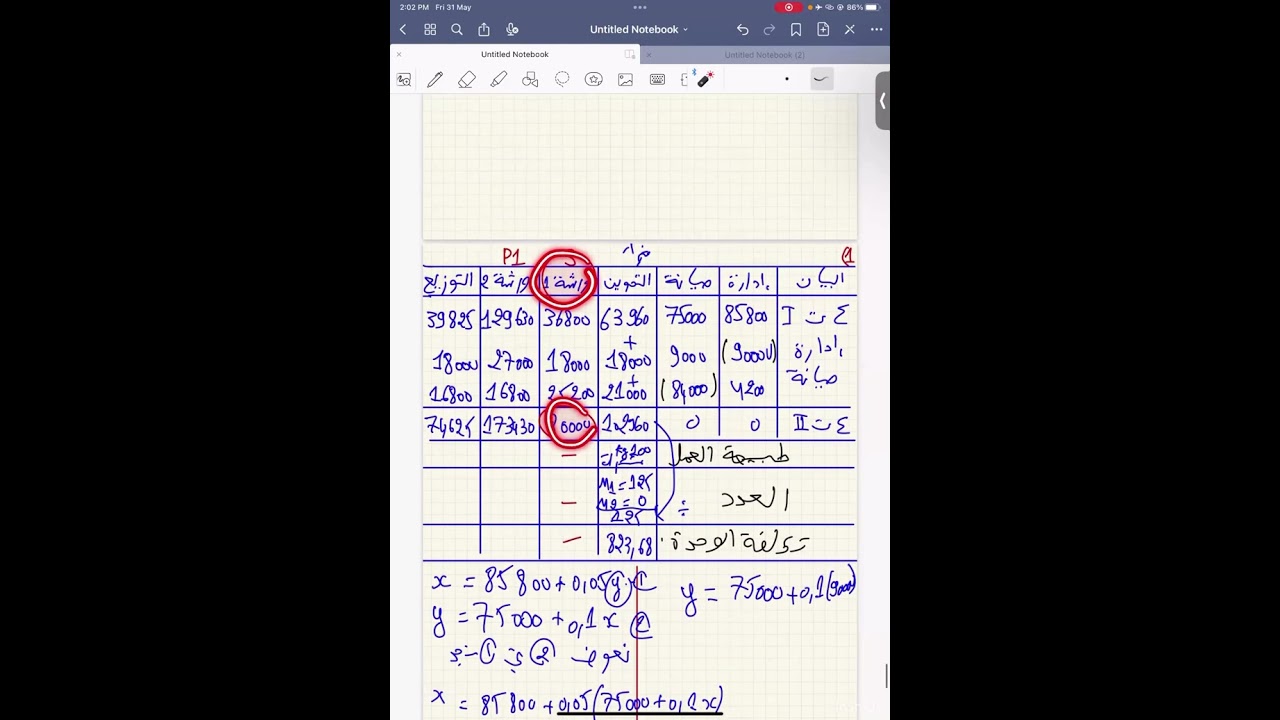 2:02 PM Fri 31 May
86%
Untitled Notebook
Untitled Notebook
Untitled Notebook (2)
P1
البيان إدارة صيانة التموين ورشة 1 ورشة 2 التوزيع
ع ت I 85800 75000 63960 36800 129630 39825
إدارة (90000) 9000 18000 18000 27000 18000
صيانة 4200 (84000) 21000 25200 16800 16800
ع ت II 0 0 102960 80000 173430 74625
طبيعة العمل
العدد ÷ M1 = 125
M2 = 0
125
تكلفة الوحدة 823,68
x = 85800 + 0,05 y ①
y = 75000 + 0,1 (9000)
y = 75000 + 0,1 x ②
نعوض ② في ①
x = 85800 + 0,05 (75000 + 0,1 x)